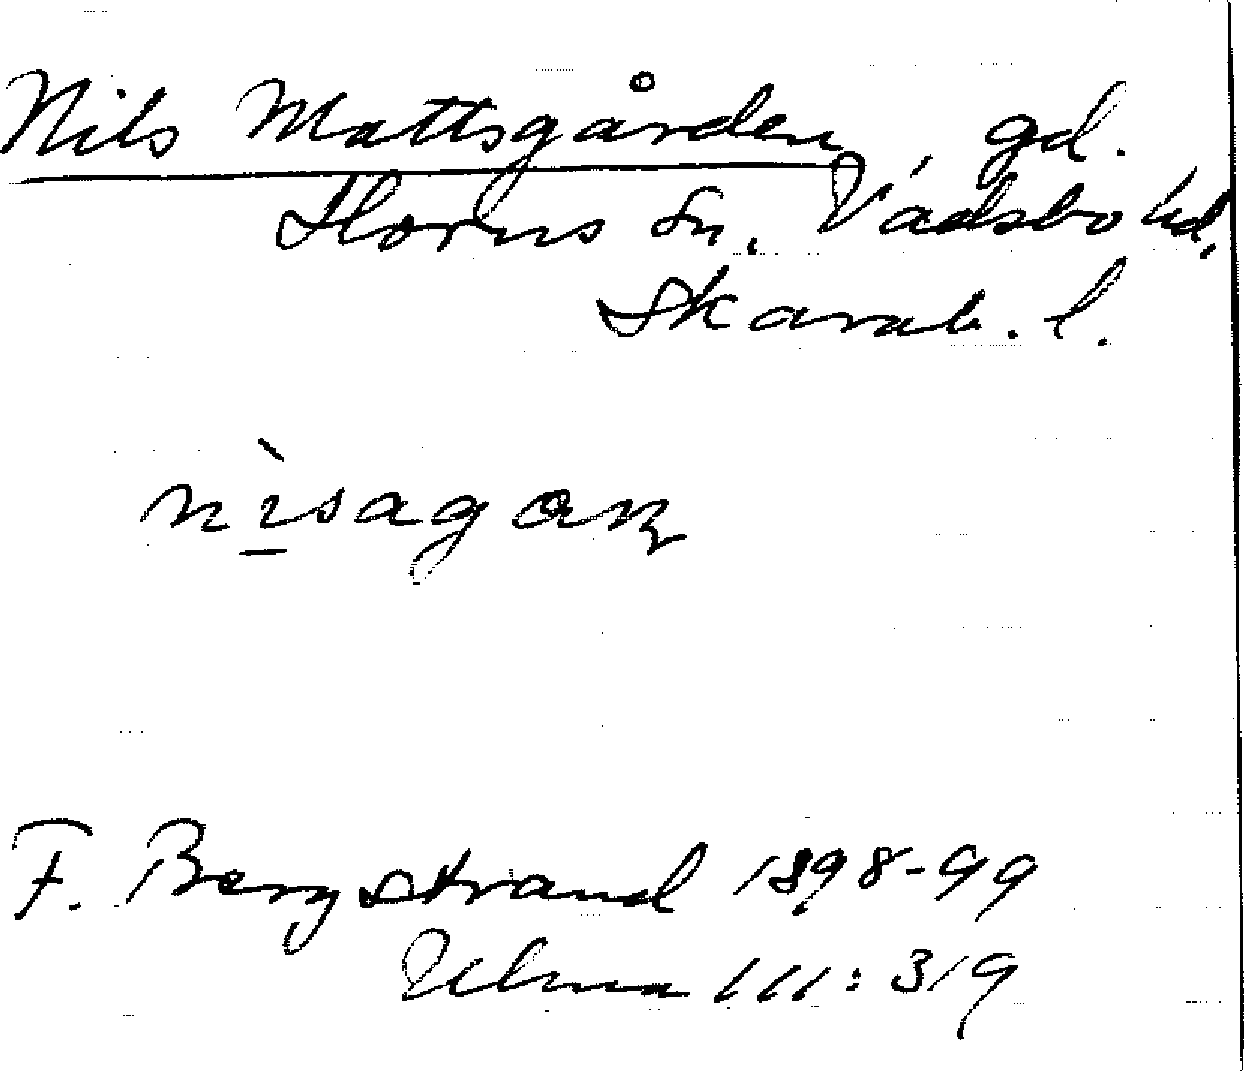 Nils Mattsgården, gd.
Horns sn. Vadsbo hd.
Skarab. l.
nìsagaṇ
F. Bergstrand 1898-99
Ulma 111:319